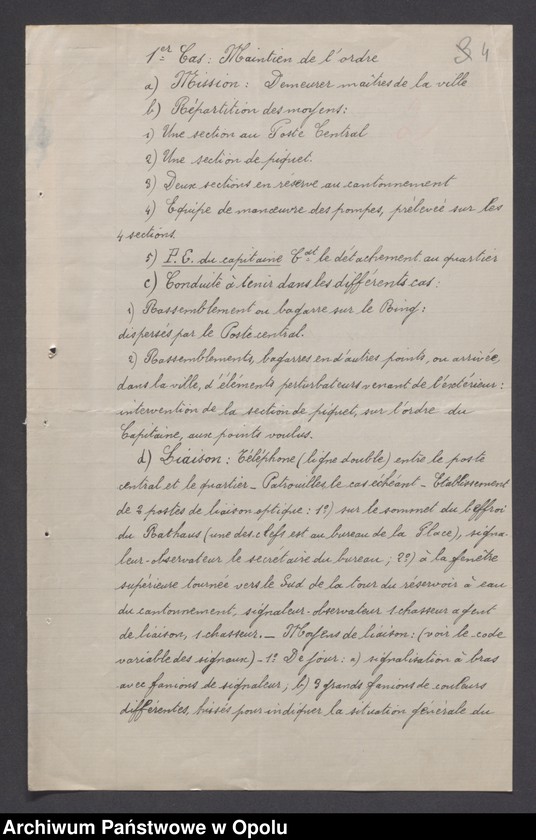 4
1er Cas: Maintien de l'ordre
a) Mission: Demeurer maîtres de la ville
b) Répartition des moyens:
1) Une section au Poste Central
2) Une section de piquet.
3) Deux sections en réserve au cantonnement
4) Equipe de manœuvre des pompes, prélevée sur les
4 sections.
5) P.C. du capitaine Ct le détachement au quartier
c) Conduite à tenir dans les différents cas:
1) Rassemblement ou bagarre sur le Ring:
dispersés par le Poste central.
2) Rassemblements, bagarres en d'autres points, ou arrivée,
dans la ville, d'éléments perturbateurs venant de l'extérieur:
intervention de la section de piquet, sur l'ordre du
Capitaine, aux points voulus.
d) Liaison: Téléphone (ligne double) entre le poste
central et le quartier - Patrouilles le cas échéant - Etablissement
de 2 postes de liaison optique: 1º) sur le sommet du beffroi
du Rathaus (une des clefs est au bureau de la Place), signa-
leur-observateur le secrétaire du bureau; 2º) à la fenêtre
supérieure tournée vers le Sud de la tour du réservoir à eau
du cantonnement, signaleur-observateur 1 chasseur agent
de liaison, 1 chasseur. - Moyens de liaison: (voir le code
variable des signaux) - 1º De jour: a) signalisation à bras
avec fanions de signaleur; b) 3 grands fanions de couleurs
différentes, hissés pour indiquer la situation générale du
Archiwum Państwowe w Opolu